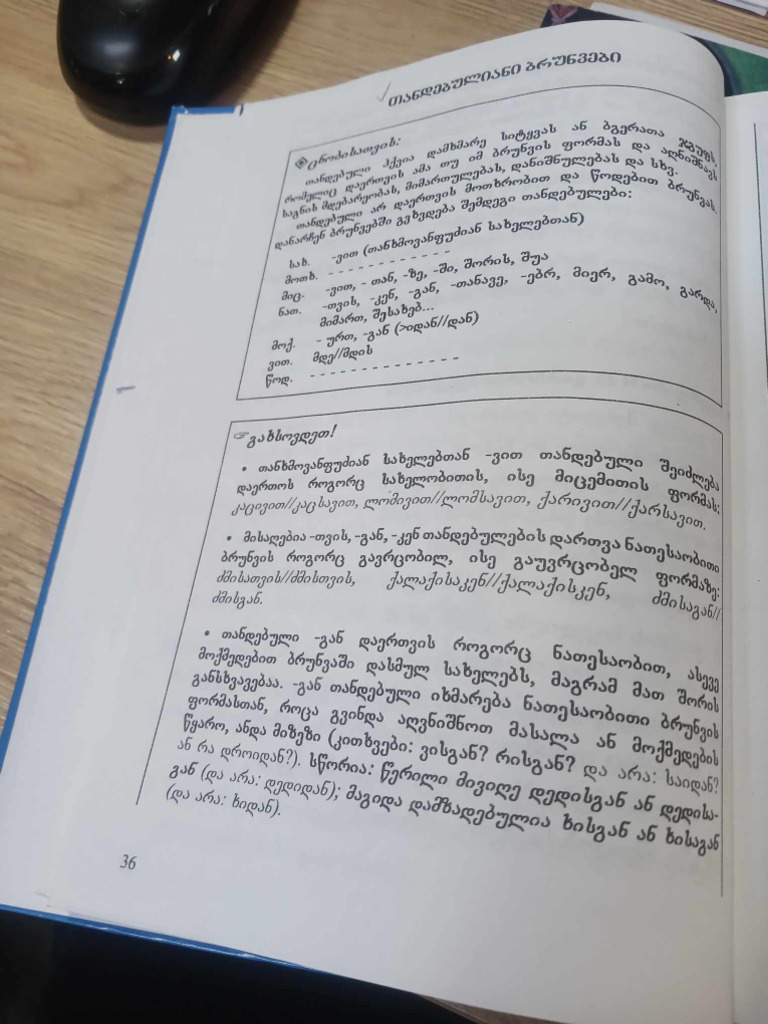 თანდებულიანი ბრუნვები
ცნობისათვის:
თანდებული ჰქვია დამხმარე სიტყვას ან ბგერათა ჯგუფს,
რომელიც დაერთვის ამა თუ იმ ბრუნვის ფორმას და აღნიშნავს
საგნის მდებარეობას, მიმართულებას, დანიშნულებას და სხვ.
თანდებული არ დაერთვის მოთხრობით და წოდებით ბრუნვას.
დანარჩენ ბრუნვებში გვხვდება შემდეგი თანდებულები:
სახ. -ვით (თანხმოვანფუძიან სახელებთან)
მოთხ. - - - - - - - - - - - -
მიც. -ვით, - თან, -ზე, -ში, შორის, შუა
ნათ. -თვის, -კენ, -გან, -თანავე, -ებრ, მიერ, გამო, გარდა,
მიმართ, შესახებ...
მოქ. - ურთ, -გან (>იდან//დან)
ვით. მდე//მდის
წოდ. - - - - - - - - - - - - - -
გახსოვდეთ!
• თანხმოვანფუძიან სახელებთან -ვით თანდებული შეიძლება
დაერთოს როგორც სახელობითის, ისე მიცემითის ფორმას:
კაცივით//კაცსავით, ლომივით//ლომსავით, ქარივით//ქარსავით.
• მისაღებია -თვის, -გან, -კენ თანდებულების დართვა ნათესაობითი
ბრუნვის როგორც გავრცობილ, ისე გაუვრცობელ ფორმაზე:
ძმისათვის//ძმისთვის, ქალაქისაკენ//ქალაქისკენ, ძმისაგან//
ძმისგან.
• თანდებული -გან დაერთვის როგორც ნათესაობით, ასევე
მოქმედებით ბრუნვაში დასმულ სახელებს, მაგრამ მათ შორის
განსხვავებაა. -გან თანდებული იხმარება ნათესაობითი ბრუნვის
ფორმასთან, როცა გვინდა აღვნიშნოთ მასალა ან მოქმედების
წყარო, ანდა მიზეზი (კითხვები: ვისგან? რისგან? და არა: საიდან?
ან რა დროიდან?). სწორია: წერილი მივიღე დედისგან ან დედისა-
გან (და არა: დედიდან); მაგიდა დამზადებულია ხისგან ან ხისაგან
(და არა: ხიდან).
36